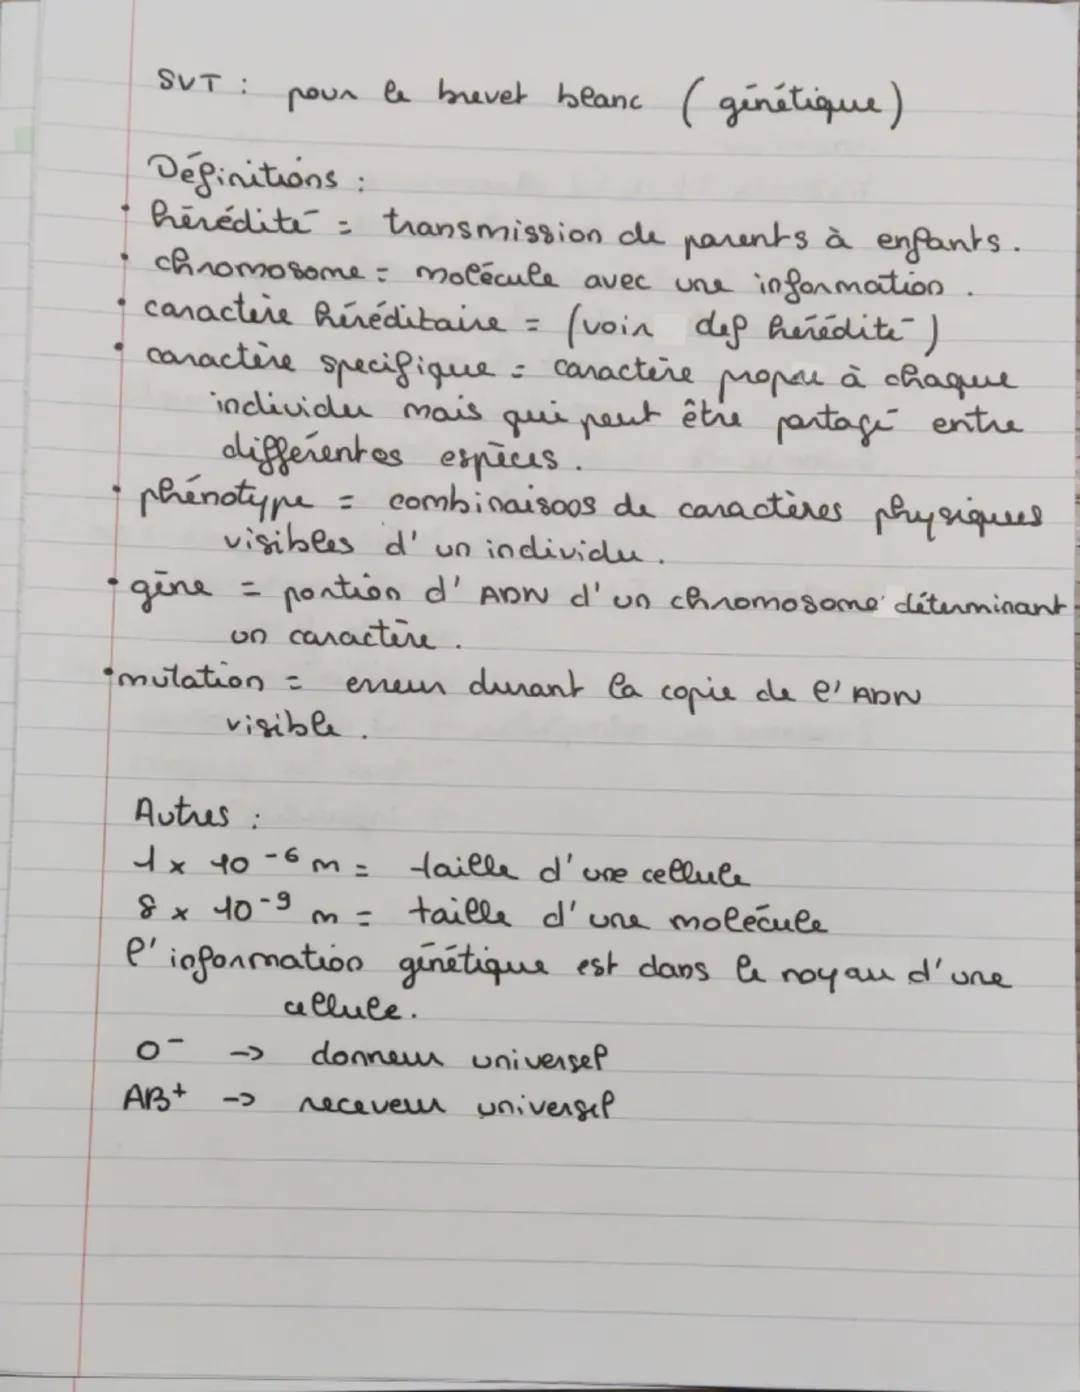 SVT : pour le brevet blanc (génétique)
Définitions :
• hérédité = transmission de parents à enfants.
• chromosome = molécule avec une information.
• caractère héréditaire = (voir def hérédité)
• caractère specifique = caractère propre à chaque
individu mais qui peut être partagé entre
différentes espèces.
• phénotype = combinaisons de caractères physiques
visibles d'un individu.
• gène = portion d'ADN d'un chromosome déterminant
un caractère.
• mutation = erreur durant la copie de l'ADN
visible.
Autres :
1 x 10⁻⁶ m = taille d'une cellule
8 x 10⁻⁹ m = taille d'une molécule
l'information génétique est dans le noyau d'une
cellule.
O⁻ -> donneur universel
AB⁺ -> receveur universel